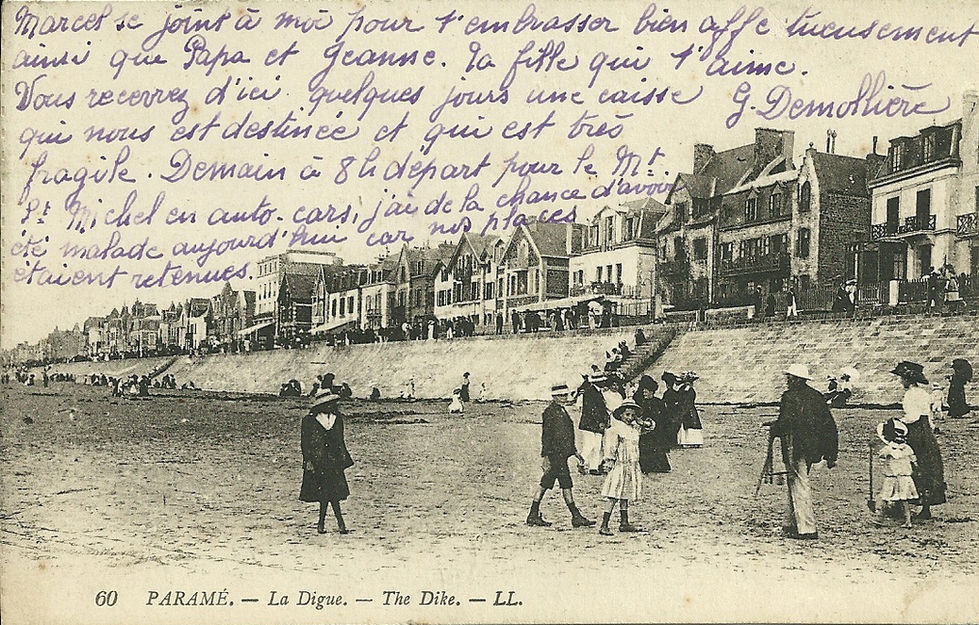 Marcel se joint à moi pour t'embrasser bien affectueusement
ainsi que Papa et Jeanne. Ta fille qui t'aime.
Vous recevrez d'ici quelques jours une caisse G. Demollière
qui nous est destinée et qui est très
fragile. Demain à 8h départ pour le Mt.
St Michel en auto-cars, j'ai de la chance d'avoir
été malade aujourd'hui car nos places
étaient retenues.
60 PARAMÉ. — La Digue. — The Dike. — LL.